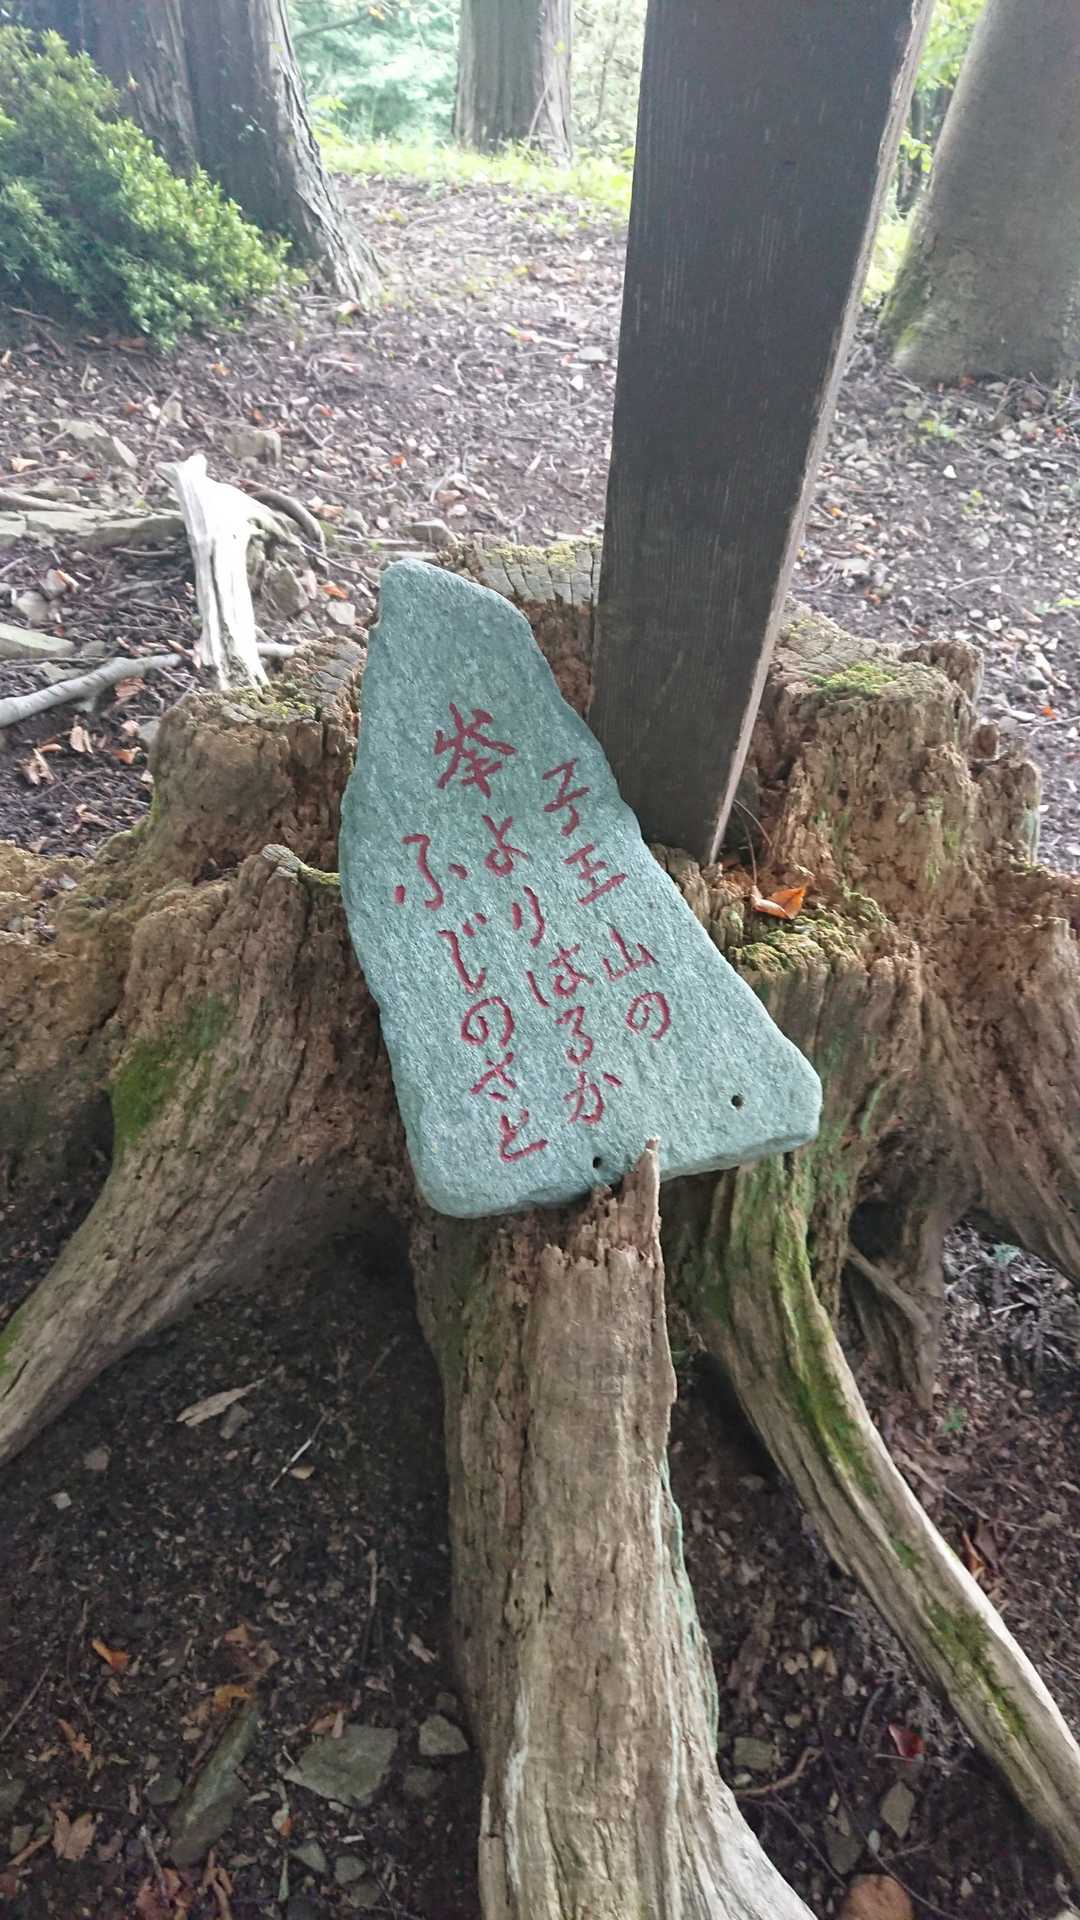 子王山の
峯よりはるか
ふじのさと